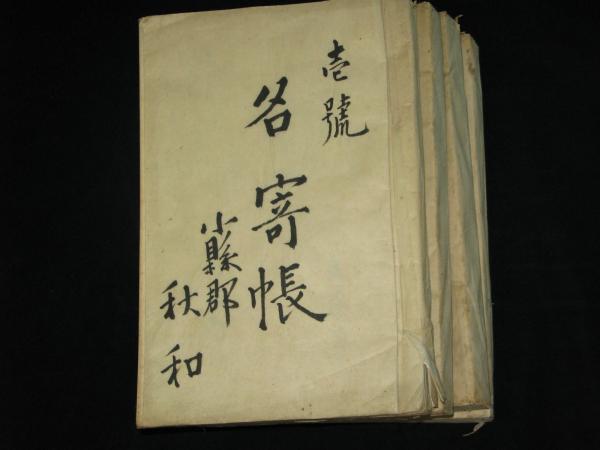 壱號
名寄帳
小縣郡
秋和